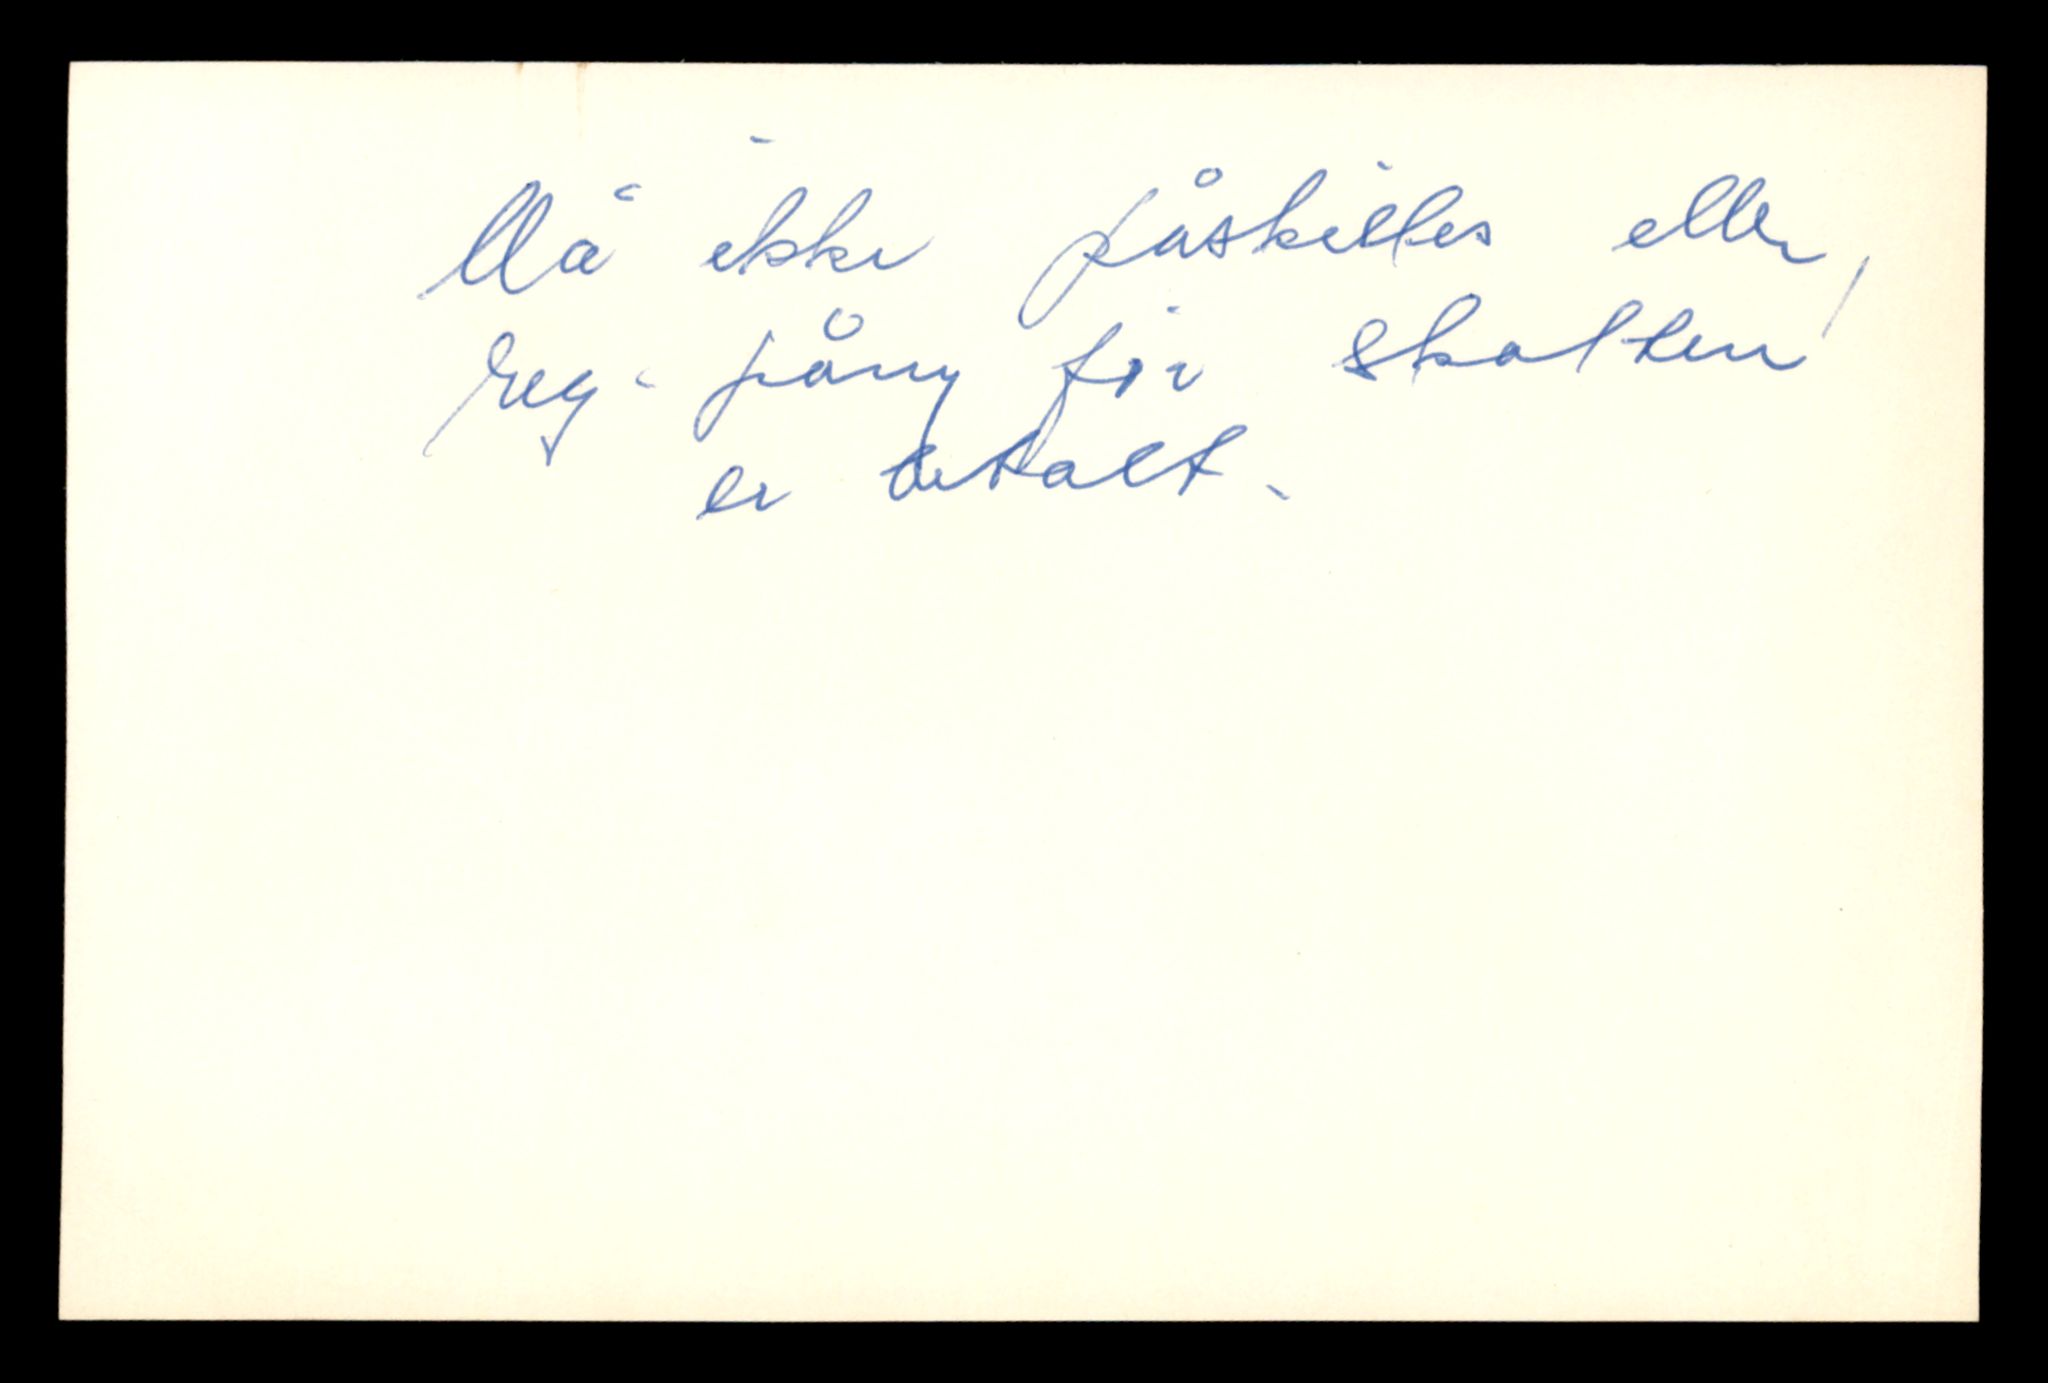 Må ikke påskilles eller
reg. påny før skatten
er betalt.